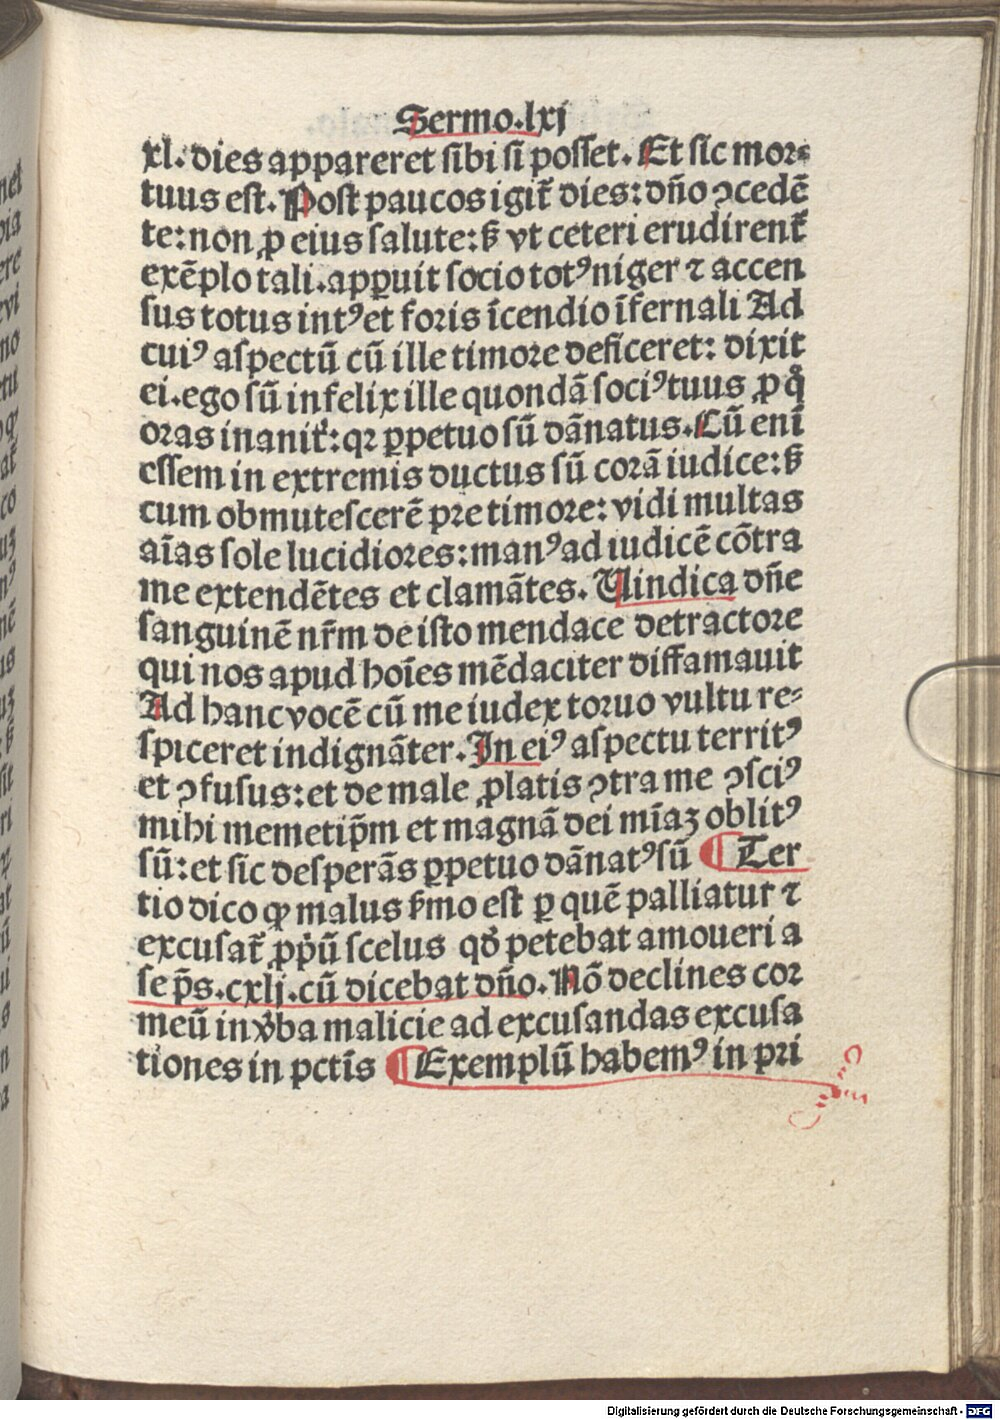 Sermo.lxj
xl. dies appareret ſibi ſi poſſet. Et ſic mor⸗
tuus eſt. Poſt paucos igit᷑ dies: dn̄o ꝯcedē
te: non ꝓ eius ſalute: ß vt ceteri erudirent᷑
exēplo tali. apꝑuit ſocio totꝰ niger ⁊ accen
ſus totus intꝰ et foris īcendio īfernali Ad
cuiꝰ aſpectū cū ille timore deficeret: dixit
ei. ego ſū infelix ille quondā ſociꝰ tuus ꝓ qͦ
oras inanit᷑: qꝛ ꝑpetuo ſū dānatus. Cū enī
eſſem in extremis ductus ſū corā iudice: ß
cum obmuteſcerē pre timore: vidi multas
aīas ſole lucidiores: manꝰ ad iudicē cōtra
me extendētes et clamātes. Uindica dn̄e
ſanguinē nr̄m de iſto mendace detractore
qui nos apud hoīes mēdaciter diffamauit
Ad hanc vocē cū me iudex toruo vultu re⸗
ſpiceret indignāter. In eiꝰ aſpectu territꝰ
et ꝯfuſus: et de male ꝓlatis ꝯtra me ꝯſciꝰ
mihi memetip̄m et magnā dei mīaꝫ oblitꝰ
ſū: et ſic deſperās ꝑpetuo dānatꝰ ſū ¶ Ter
tio dico ꝙ malus ẜmo eſt ꝑ quē palliatur ⁊
excuſat᷑ ꝓpͥū ſcelus qd̓ petebat amoueri a
ſe p̄s. cxlj. cū dicebat dn̄o. Nō declines cor
meū in v̓ba malicie ad excuſandas excuſa
tiones in pctīs ¶ Exemplū habemꝰ in pri
Digitalisierung gefördert durch die Deutsche Forschungsgemeinschaft - DFG